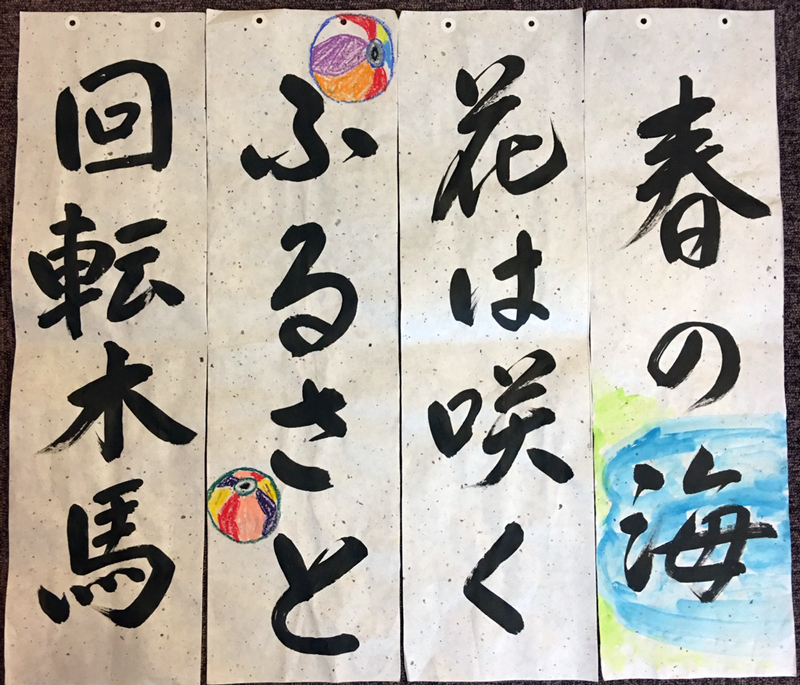 春の海
花は咲く
ふるさと
回転木馬